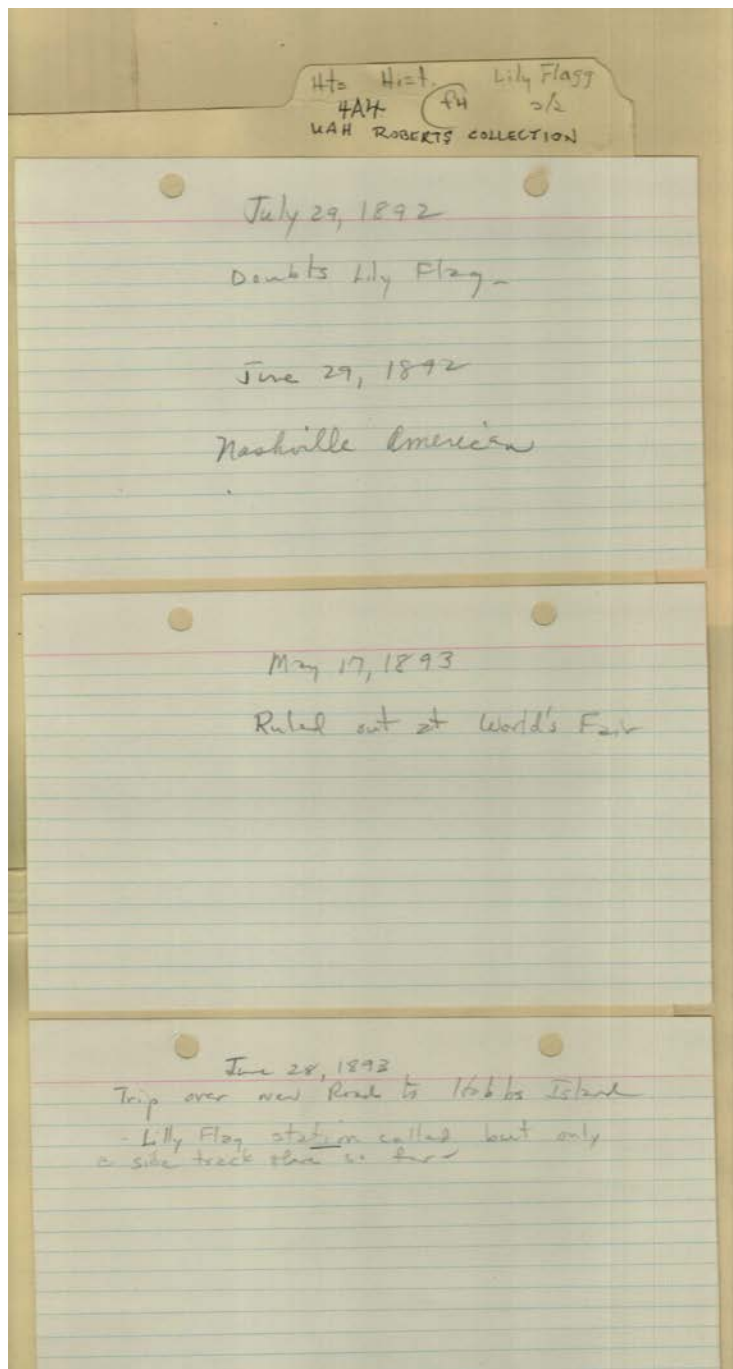 Hts Hist. Lily Flagg
4A4 f4 2/2
UAH ROBERTS COLLECTION
July 29, 1892
Doubts Lily Flag-
June 29, 1892
Nashville American
May 17, 1893
Ruled out at World's Fair
June 28, 1893
Trip over new Road to Hobbs Island
- Lilly Flag station called but only
a side track there so far